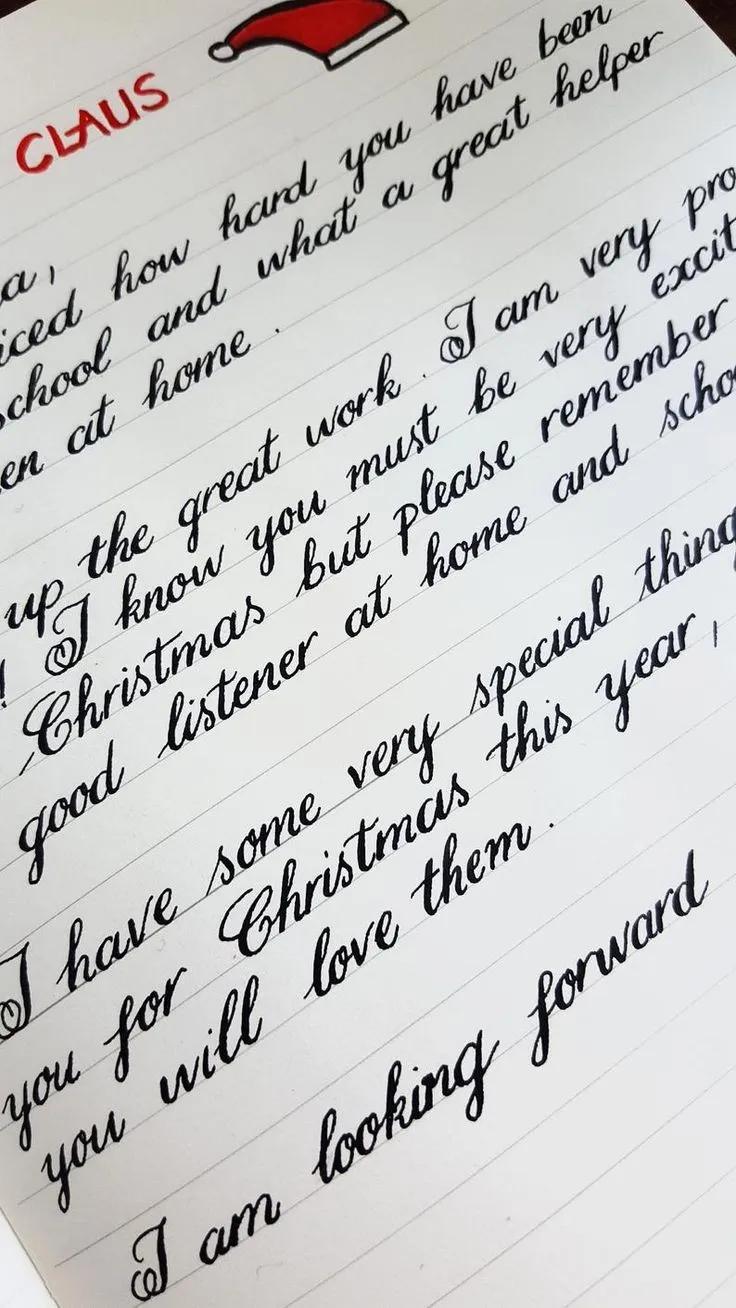 CLAUS
a,
iced how hard you have been
school and what a great helper
en at home.
up the great work. I am very pro
! I know you must be very excit
Christmas but please remember
good listener at home and scho
I have some very special thing
you for Christmas this year,
you will love them.
I am looking forward